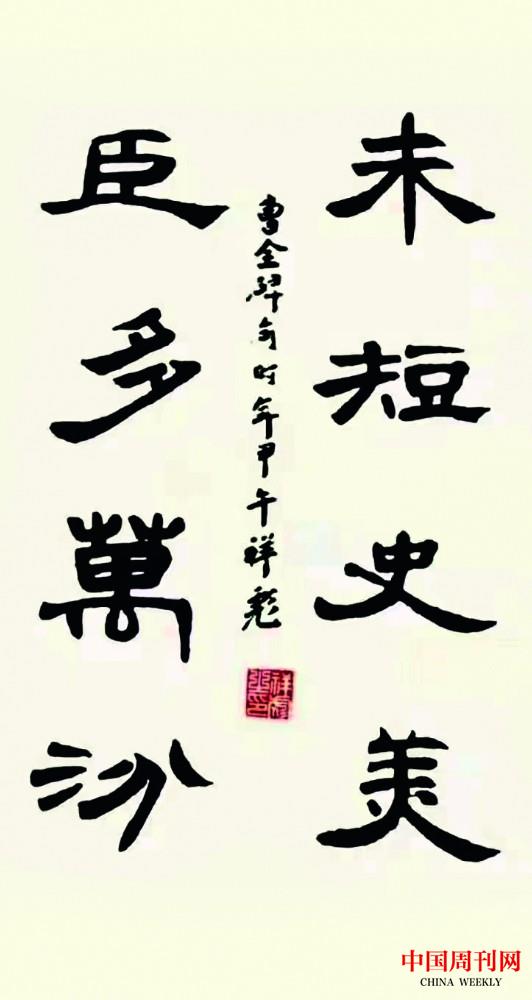 未短史美
曹全碑句时年甲午祥彪
臣多萬汾
中国周刊网
CHINA WEEKLY